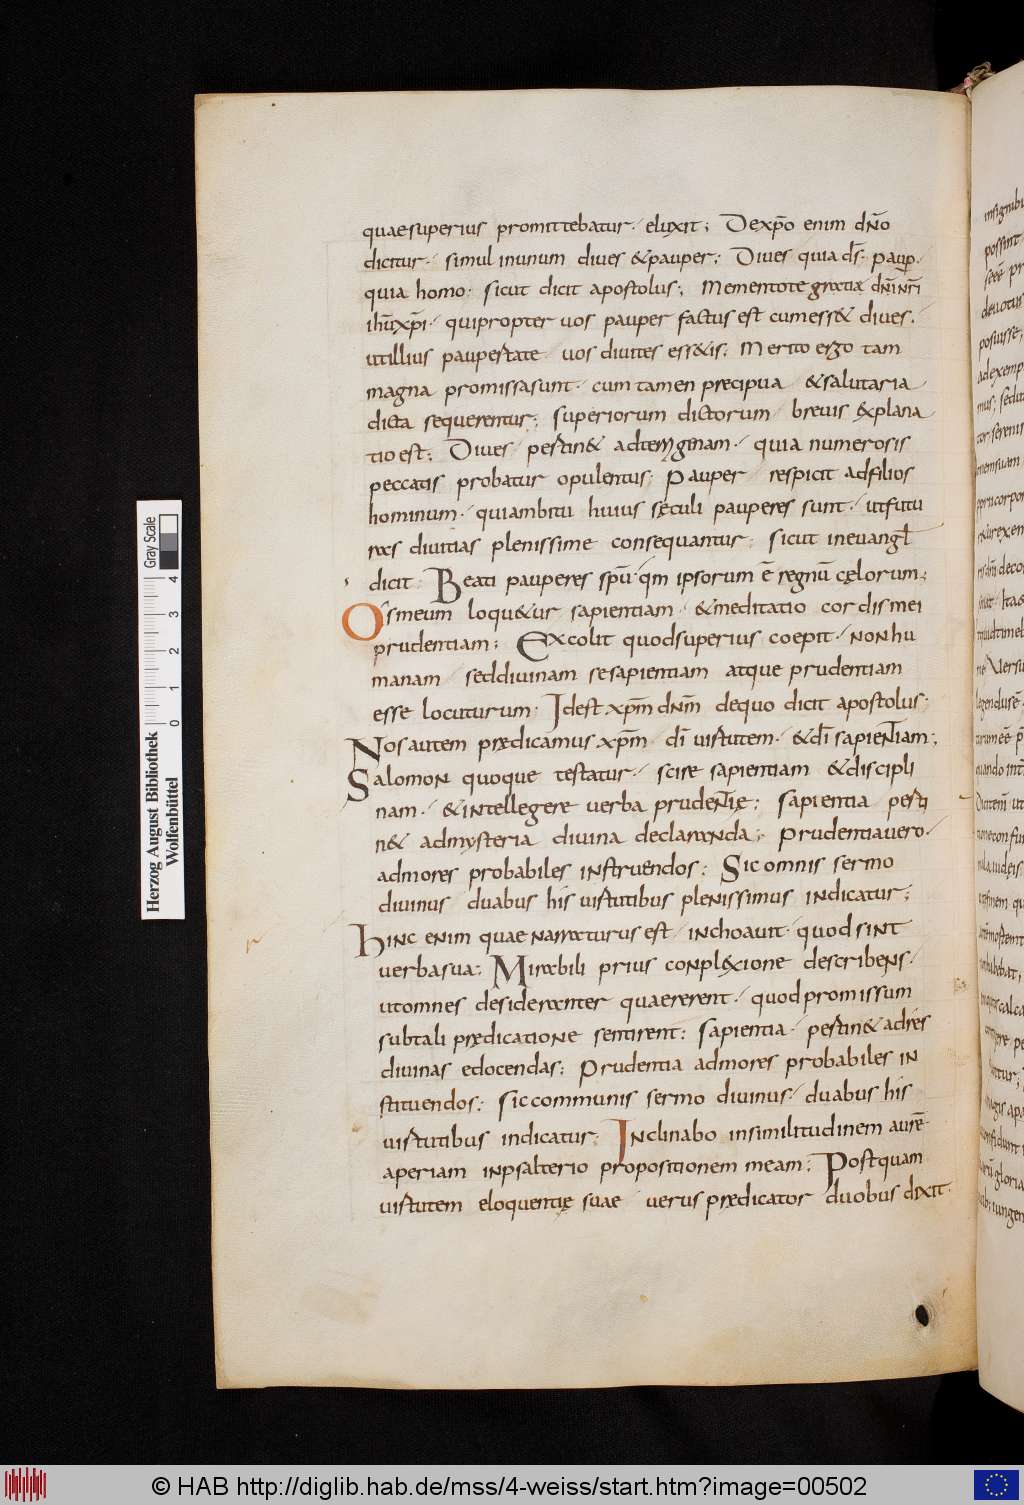 quaesuperius promittebatur· eluxit; Dexp̄o enim dn̄o
dicitur· simul inunum diues &pauper; Diues quia ds̄· paup̄·
quia homo· sicut dicit apostolus; Mementote gratiæ dn̄i nr̄i
ihūxp̄i· quipropter uos pauper factus est cumess& diues;
utillius paupertate uos diuites ess&is; Merito ergo tam
magna promissasunt· cum tamen precipua &salutaria
dicta sequerentur; superiorum dictorum breuis explana
tio est; Diues pertin& ad quia numerosis
peccatis probatur opulentus; Pauper respicit adfilios
hominum· quiambitu huius sęculi pauperes sunt· utfutu
ras diuitias plenissime consequantur; sicut ineuangl̄
dicit; Beati pauperes sp̄u qm̄ ipsorum ē regnū cęlorum;
Os meum loqu&ur sapientiam· &meditatio cordis mei
prudentiam; Excolit quodsuperius coepit· non hu
manam seddiuinam sesapientiam atque prudentiam
esse locuturum· Idest xp̄m dn̄m dequo dicit apostolus;
Nos autem prędicamus xp̄m dī uirtutem· &dī sapientiam;
Salomon quoque testatur· scire sapientiam &discipli
nam· &intellegere uerba prudentię; sapientia perti
n& admysteria diuina declaranda; prudentiauero·
admores probabiles instruendos; Sic omnis sermo
diuinus duabus his uirtutibus plenissimus indicatur;
Hinc enim quae narraturus est inchoauit· quod sint
uerbasua; Mirabili prius conplexione describens·
utomnes desideranter quaererent· quod promissum
subtali prędicatione sentirent; sapientia· pertin& adres
diuinas edocendas; Prudentia admores probabiles in
stituendos; sic communis sermo diuinus· duabus his
uirtutibus indicatur; Inclinabo insimilitudinem aurē·
aperiam inpsalterio propositionem meam; Postquam
uirtutem eloquentię suae uerus prędicator duobus dixit·
insignibu
possint
deuotus
posuisse,
adexemp
tor serenis
Herzog August Bibliothek
Wolfenbüttel
0 1 2 3 4
Gray Scale
© HAB http://diglib.hab.de/mss/4-weiss/start.htm?image=00502